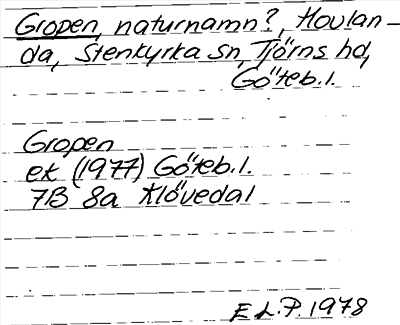 Gropen, naturnamn?, Hovlan-
da, Stenkyrka sn, Tjörns hd,
Göteb. l.
Gropen
ek (1977) Göteb. l.
7B 8a Klövedal
E L. P. 1978